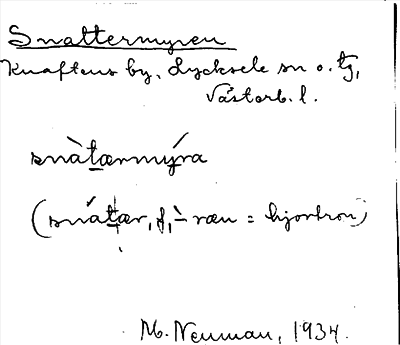 Snattermyren
Knaftens by, Lycksele sn o. tg,
Västerb. l.
snàtærmýra
(snátær, f, -̀ræn = hjortron)
M. Neuman, 1934.